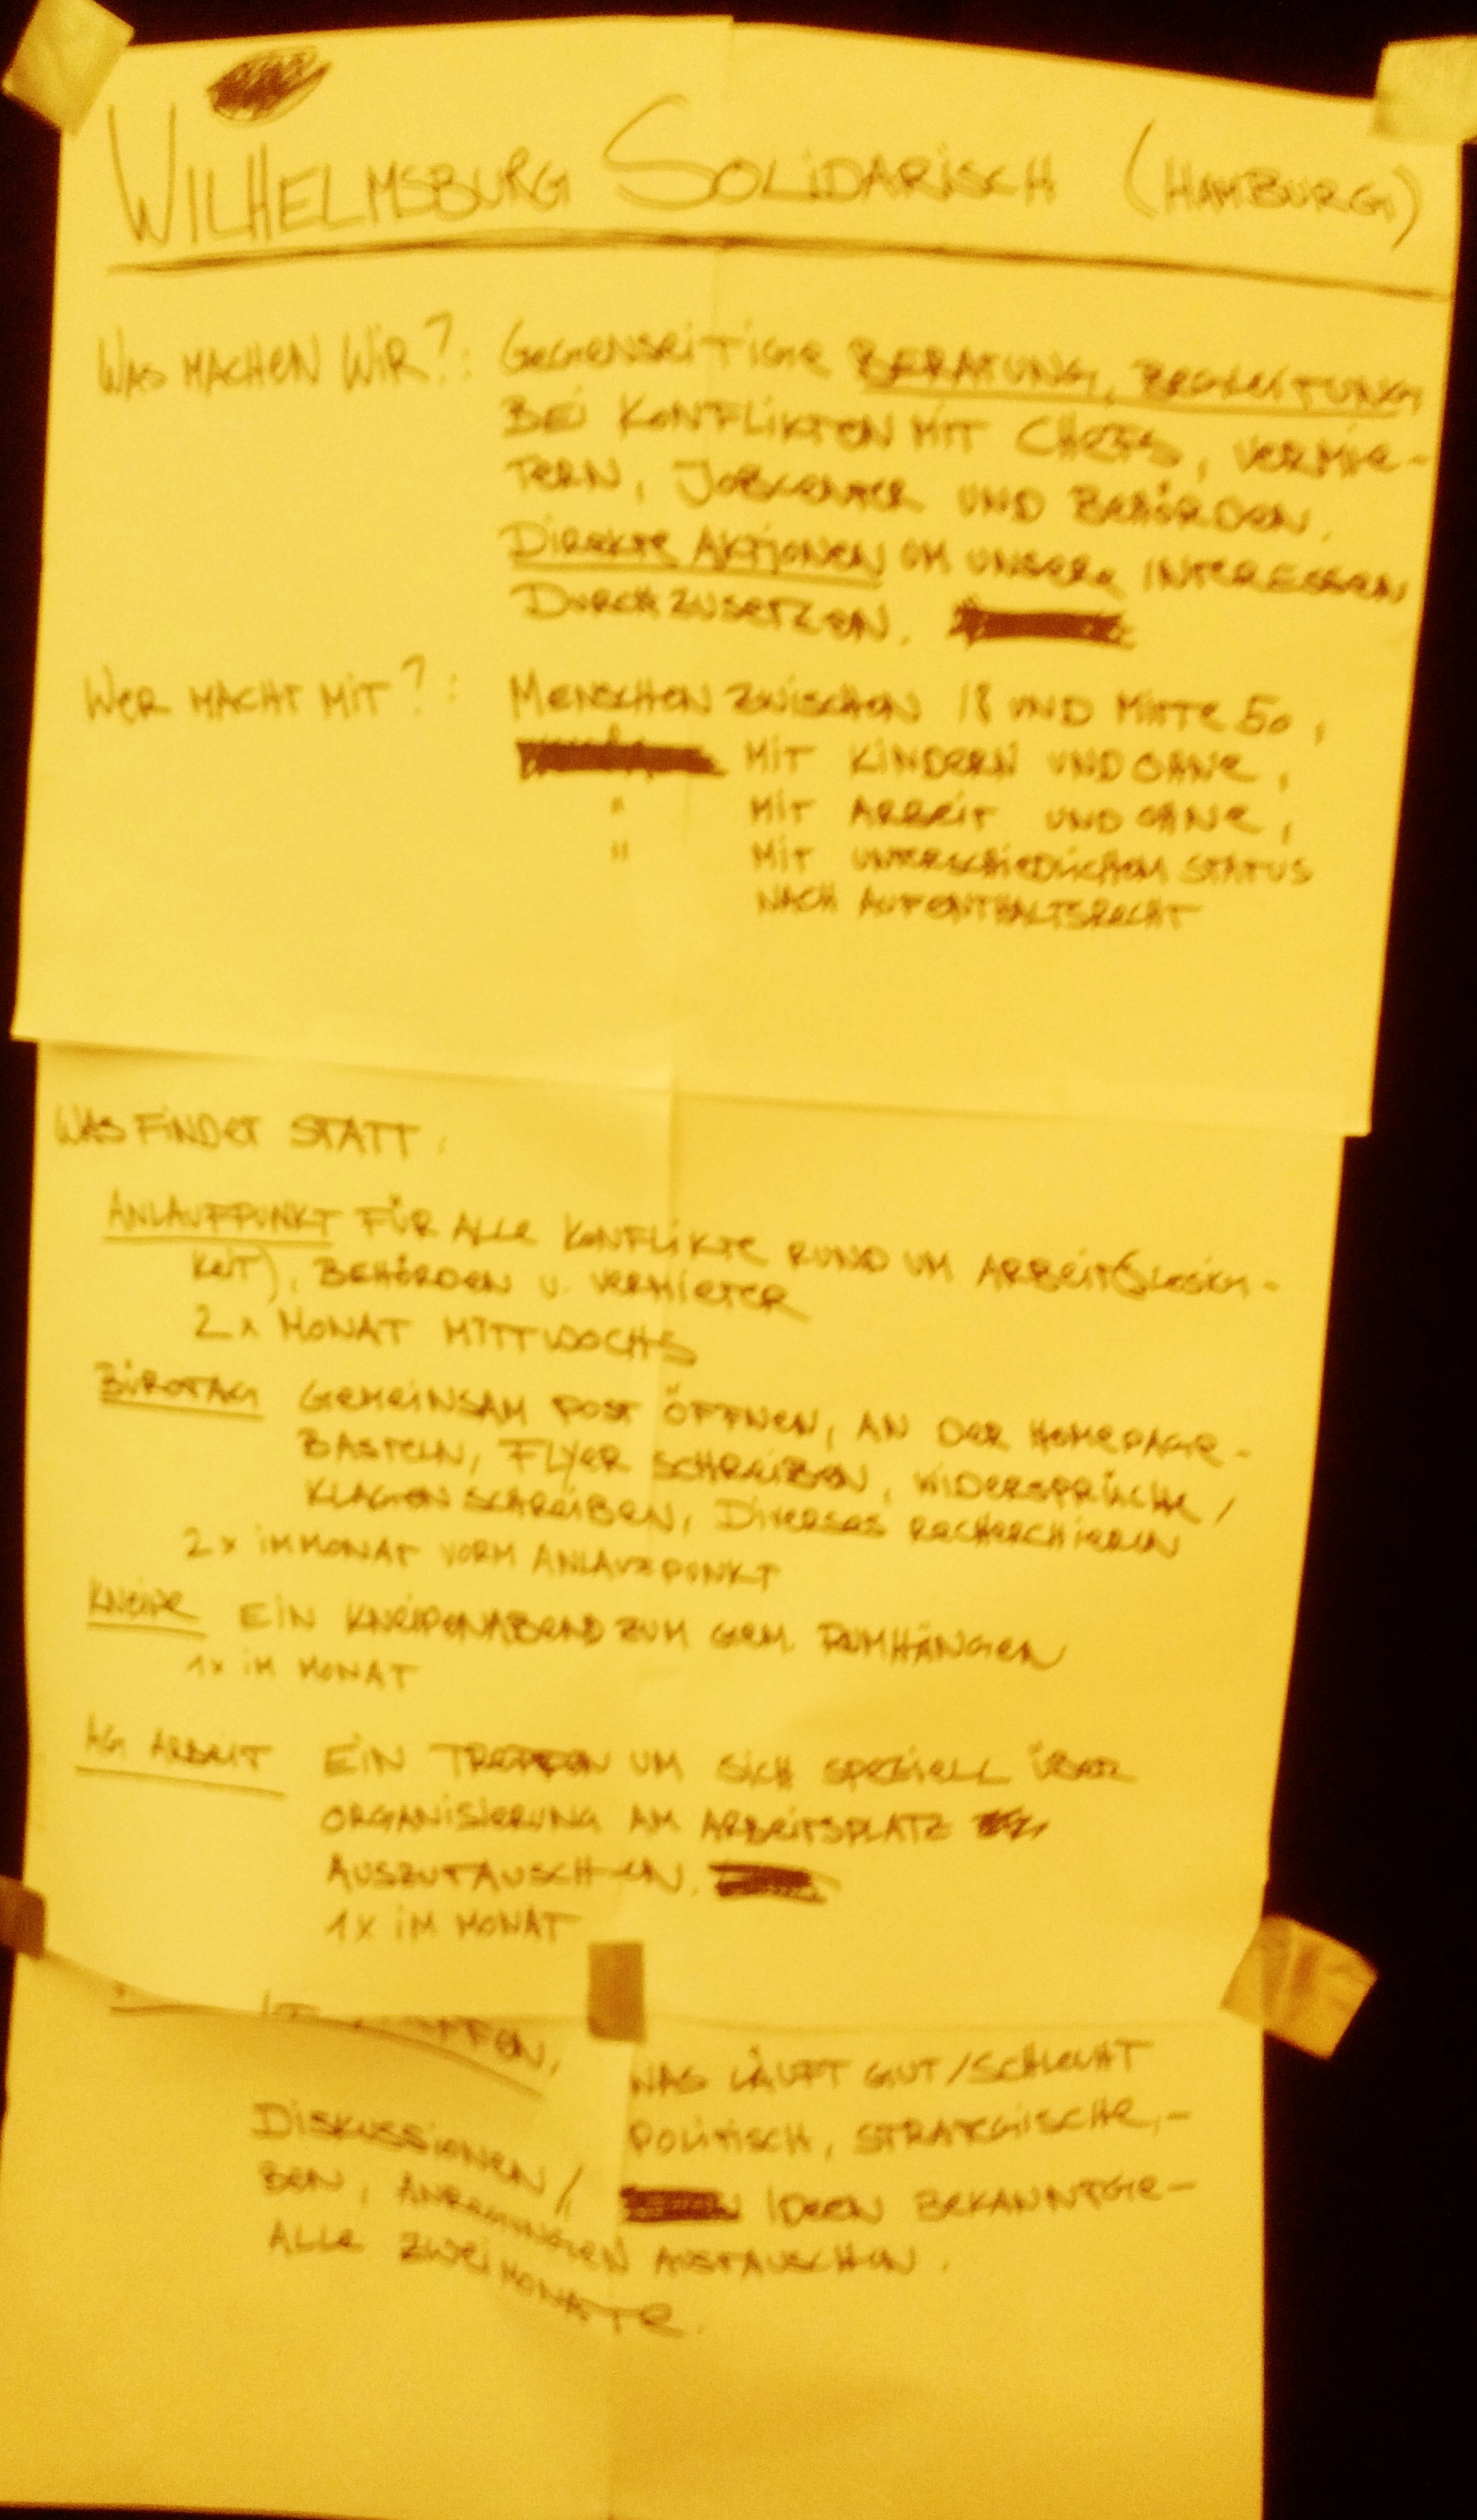 WILHELMSBURG SOLIDARISCH (HAMBURG)
WAS MACHEN WIR?: GEGENSEITIGE BERATUNG, BEGLEITUNG
BEI KONFLIKTEN MIT CHEFS, VERMIE-
TERN, JOBCENTER UND BEHÖRDEN.
DIREKTE AKTIONEN UM UNSERE INTERESSEN
DURCHZUSETZEN.
WER MACHT MIT?: MENSCHEN ZWISCHEN 18 UND MITTE 50,
MIT KINDERN UND OHNE,
" MIT ARBEIT UND OHNE,
" MIT UNTERSCHIEDLICHEM STATUS
NACH AUFENTHALTSRECHT
WAS FINDET STATT:
ANLAUFPUNKT FÜR ALLE KONFLIKTE RUND UM ARBEIT(SLOSIG-
KEIT), BEHÖRDEN U. VERMIETER
2x MONAT MITTWOCHS
BÜROTAG GEMEINSAM POST ÖFFNEN, AN DER HOMEPAGE-
BASTELN, FLYER SCHREIBEN, WIDERSPRÜCHE/
KLAGEN SCHREIBEN, DIVERSES RECHERCHIEREN
2x IM MONAT VORM ANLAUFPUNKT
KNEIPE EIN KNEIPENABEND ZUM GEM. RUMHÄNGEN
1x IM MONAT
AG ARBEIT EIN TREFFEN UM SICH SPEZIELL ÜBER
ORGANISIERUNG AM ARBEITSPLATZ
AUSZUTAUSCHEN.
1x IM MONAT
WAS LÄUFT GUT/SCHLECHT
DISKUSSIONEN/ POLITISCH, STRATEGISCHE,-
IDEEN BEKANNTGE-
BEN, ANREGUNGEN AUSTAUSCHEN.
ALLE ZWEI MONATE.